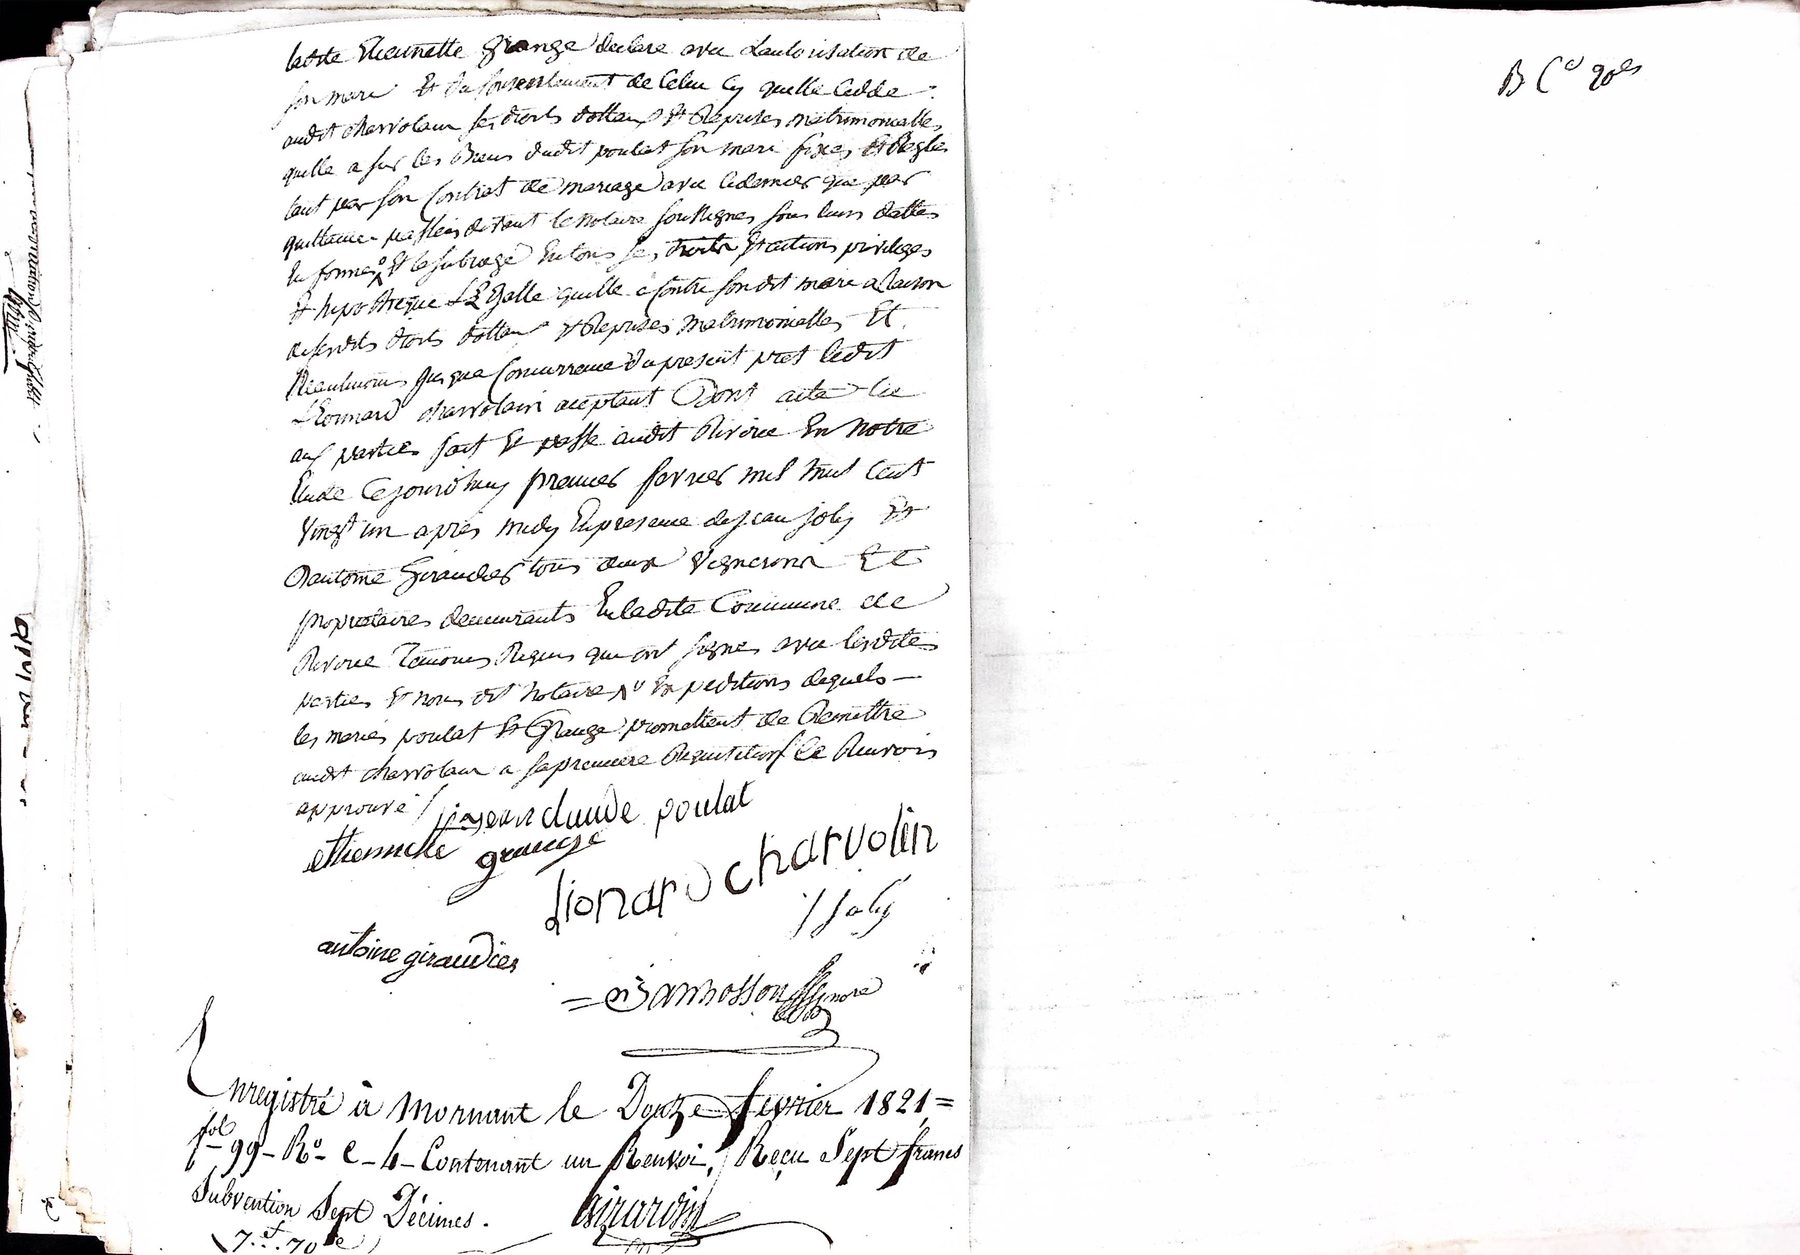 ladite Etiennette Grange declare avec Lautorisation de
son mari Et du Consentement de Celui Cy quelle Cedde
audit charvolain ses droits dottaux Et Reprises matrimonialles
quelle a sur les Biens dudit poulat son mari fixés Et Reglés
tant par son Contrat de mariage avec ledernier que par
quittance passées devant le notaire soussignés sous leurs dattes
En formes Et le subroge En tous ses droits Et actions privileges
Et hipotheque LEgalle quelle a Contre son dit mari a Raison
desesdits droits dottaux Et Reprises matrimonialles Et
Neantmoins jusqua Concurrence du present pret ledit
LEonnard charvolain aceptant Dont acte lu
aux parties fait Et passé audit Riverie En Notre
Etude Cejourdhuy premier fevrier mil huit Cent
vingt un apres midy En presence de jean joly Et
Dantoine Giraudier tous deux Vignerons Et
propriétaires demeurants En ladite Commune de
Riverie Temoins Requis qui ont signes avec lesdites
parties Et nous dit Notaire Expeditions desquels
les mariés poulat Et Grange promettent de Remettre
audit charvolain a sa premiere Requisition le Renvois
approuvé
jean claude poulat
ettiennette grange
Lionard charvolin
j Joly
antoine giraudier
nore
Enregistré à Mornant le Douze fevrier 1821 =
fol 99 - Ro - C - 4 - Contenant un Renvoi, Reçu Sept francs
Subvention Sept Décimes.
Girardin
7.f.70c
B Ca 90es